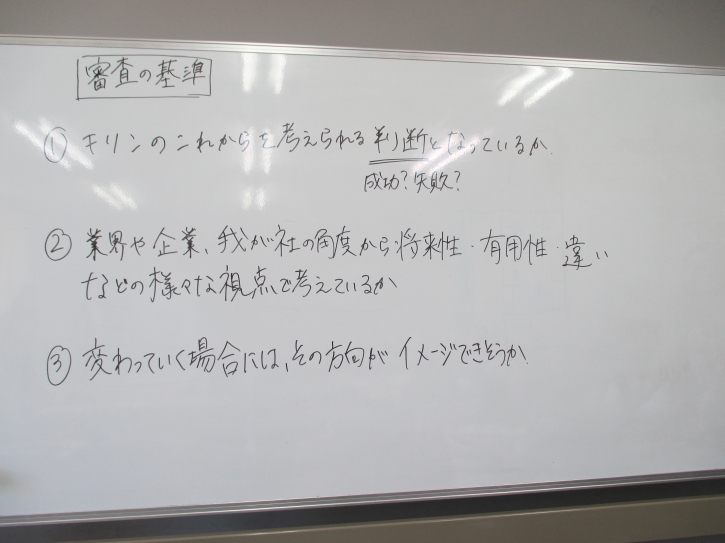 審査の基準
① キリンのこれからを考えられる判断となっているか
成功？失敗？
② 業界や企業、我が社の角度から将来性・有用性・違い
などの様々な視点で考えているか
③ 変わっていく場合には、その方向がイメージできそうか